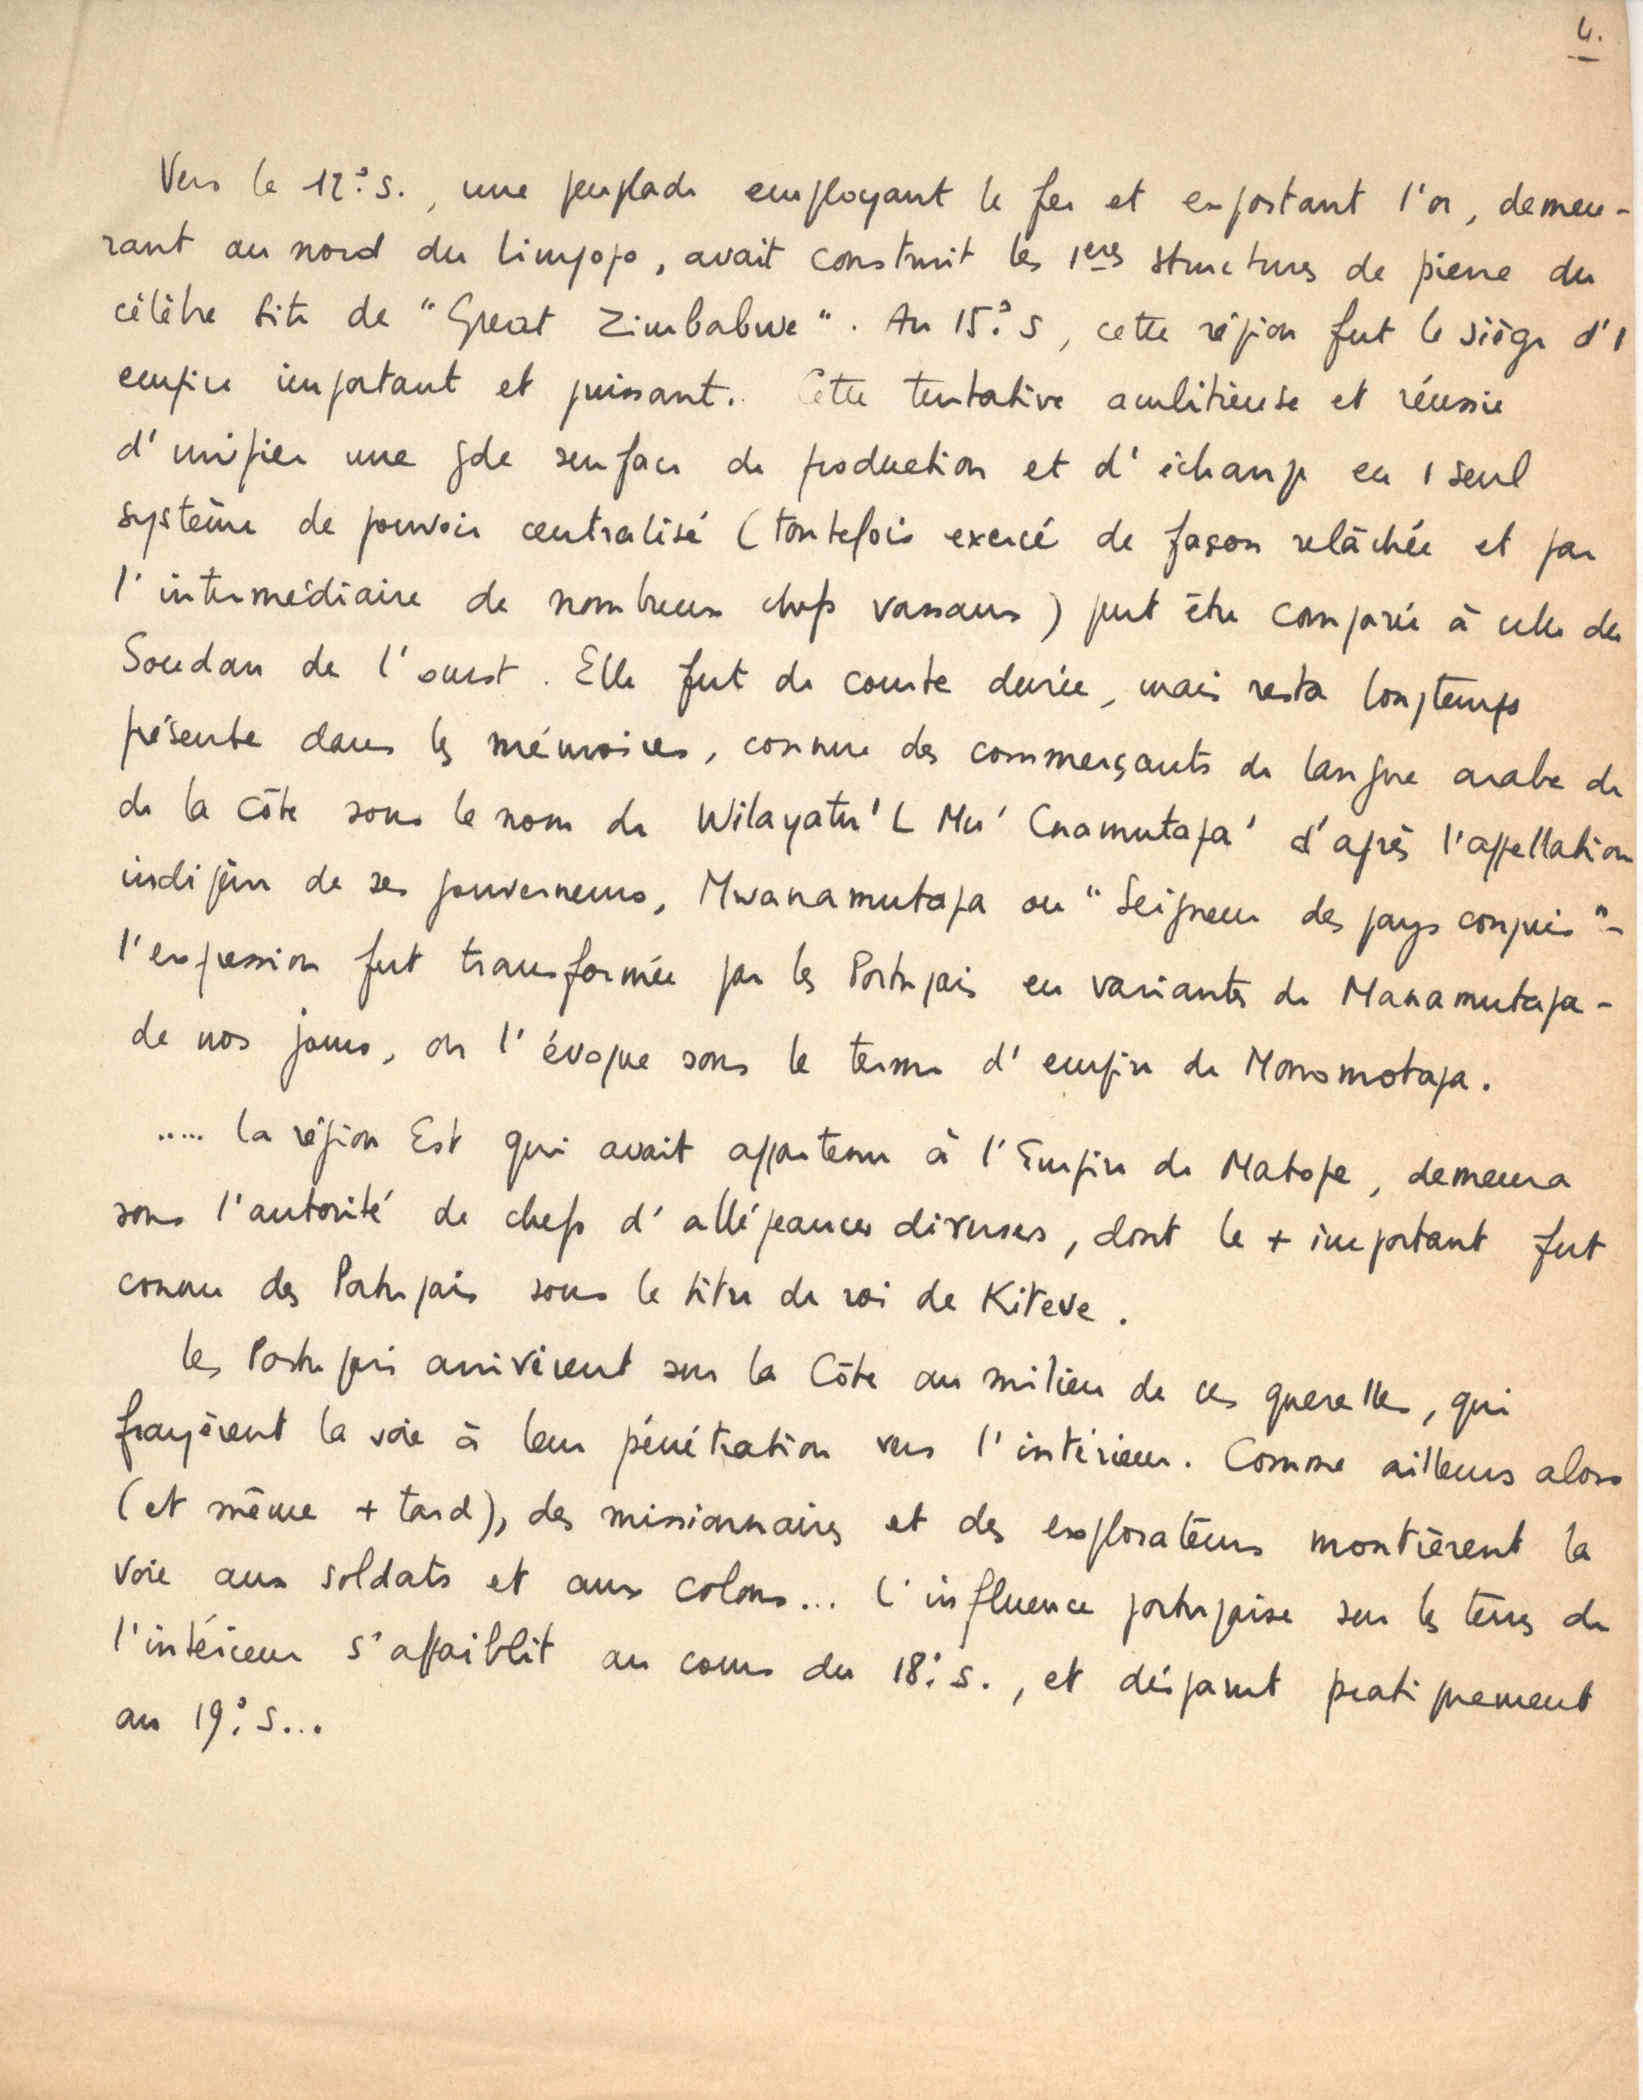 4.
Vers le 12° s., une peuplade employant le fer et exportant l'or, demeu-
rant au nord du Limpopo, avait construit les 1ères structures de pierre du
célèbre site de "Great Zimbabwe". Au 15° s, cette région fut le siège d'1
empire important et puissant. Cette tentative ambitieuse et réussie
d'unifier une gde surface de production et d'échange en 1 seul
système de pouvoir centralisé (toutefois exercé de façon relâchée et par
l'intermédiaire de nombreux chefs vassaux) peut être comparée à celle du
Soudan de l'ouest. Elle fut de courte durée, mais resta longtemps
présente dans les mémoires, connue des commerçants de langue arabe de
de la Côte sous le nom de Wilayatu' L Mu' Cnamutapa' d'après l'appellation
indigène de ses gouverneurs, Mwanamutapa ou "Seigneur des pays conquis" -
l'expression fut transformée par les Portugais en variantes de Manamutapa -
de nos jours, on l'évoque sous le terme d'empire de Monomotapa.
..... la région Est qui avait appartenu à l'Empire de Matope, demeura
sous l'autorité de chefs d'allégeances diverses, dont le + important fut
connu des Portugais sous le titre de roi de Kiteve.
Les Portugais arrivèrent sur la Côte au milieu de ces querelles, qui
frayèrent la voie à leur pénétration vers l'intérieur. Comme ailleurs alors
(et même + tard), des missionnaires et des explorateurs montrèrent la
voie aux soldats et aux colons... L'influence portugaise sur les terres de
l'intérieur s'affaiblit au cours du 18° s., et disparut pratiquement
au 19° s...